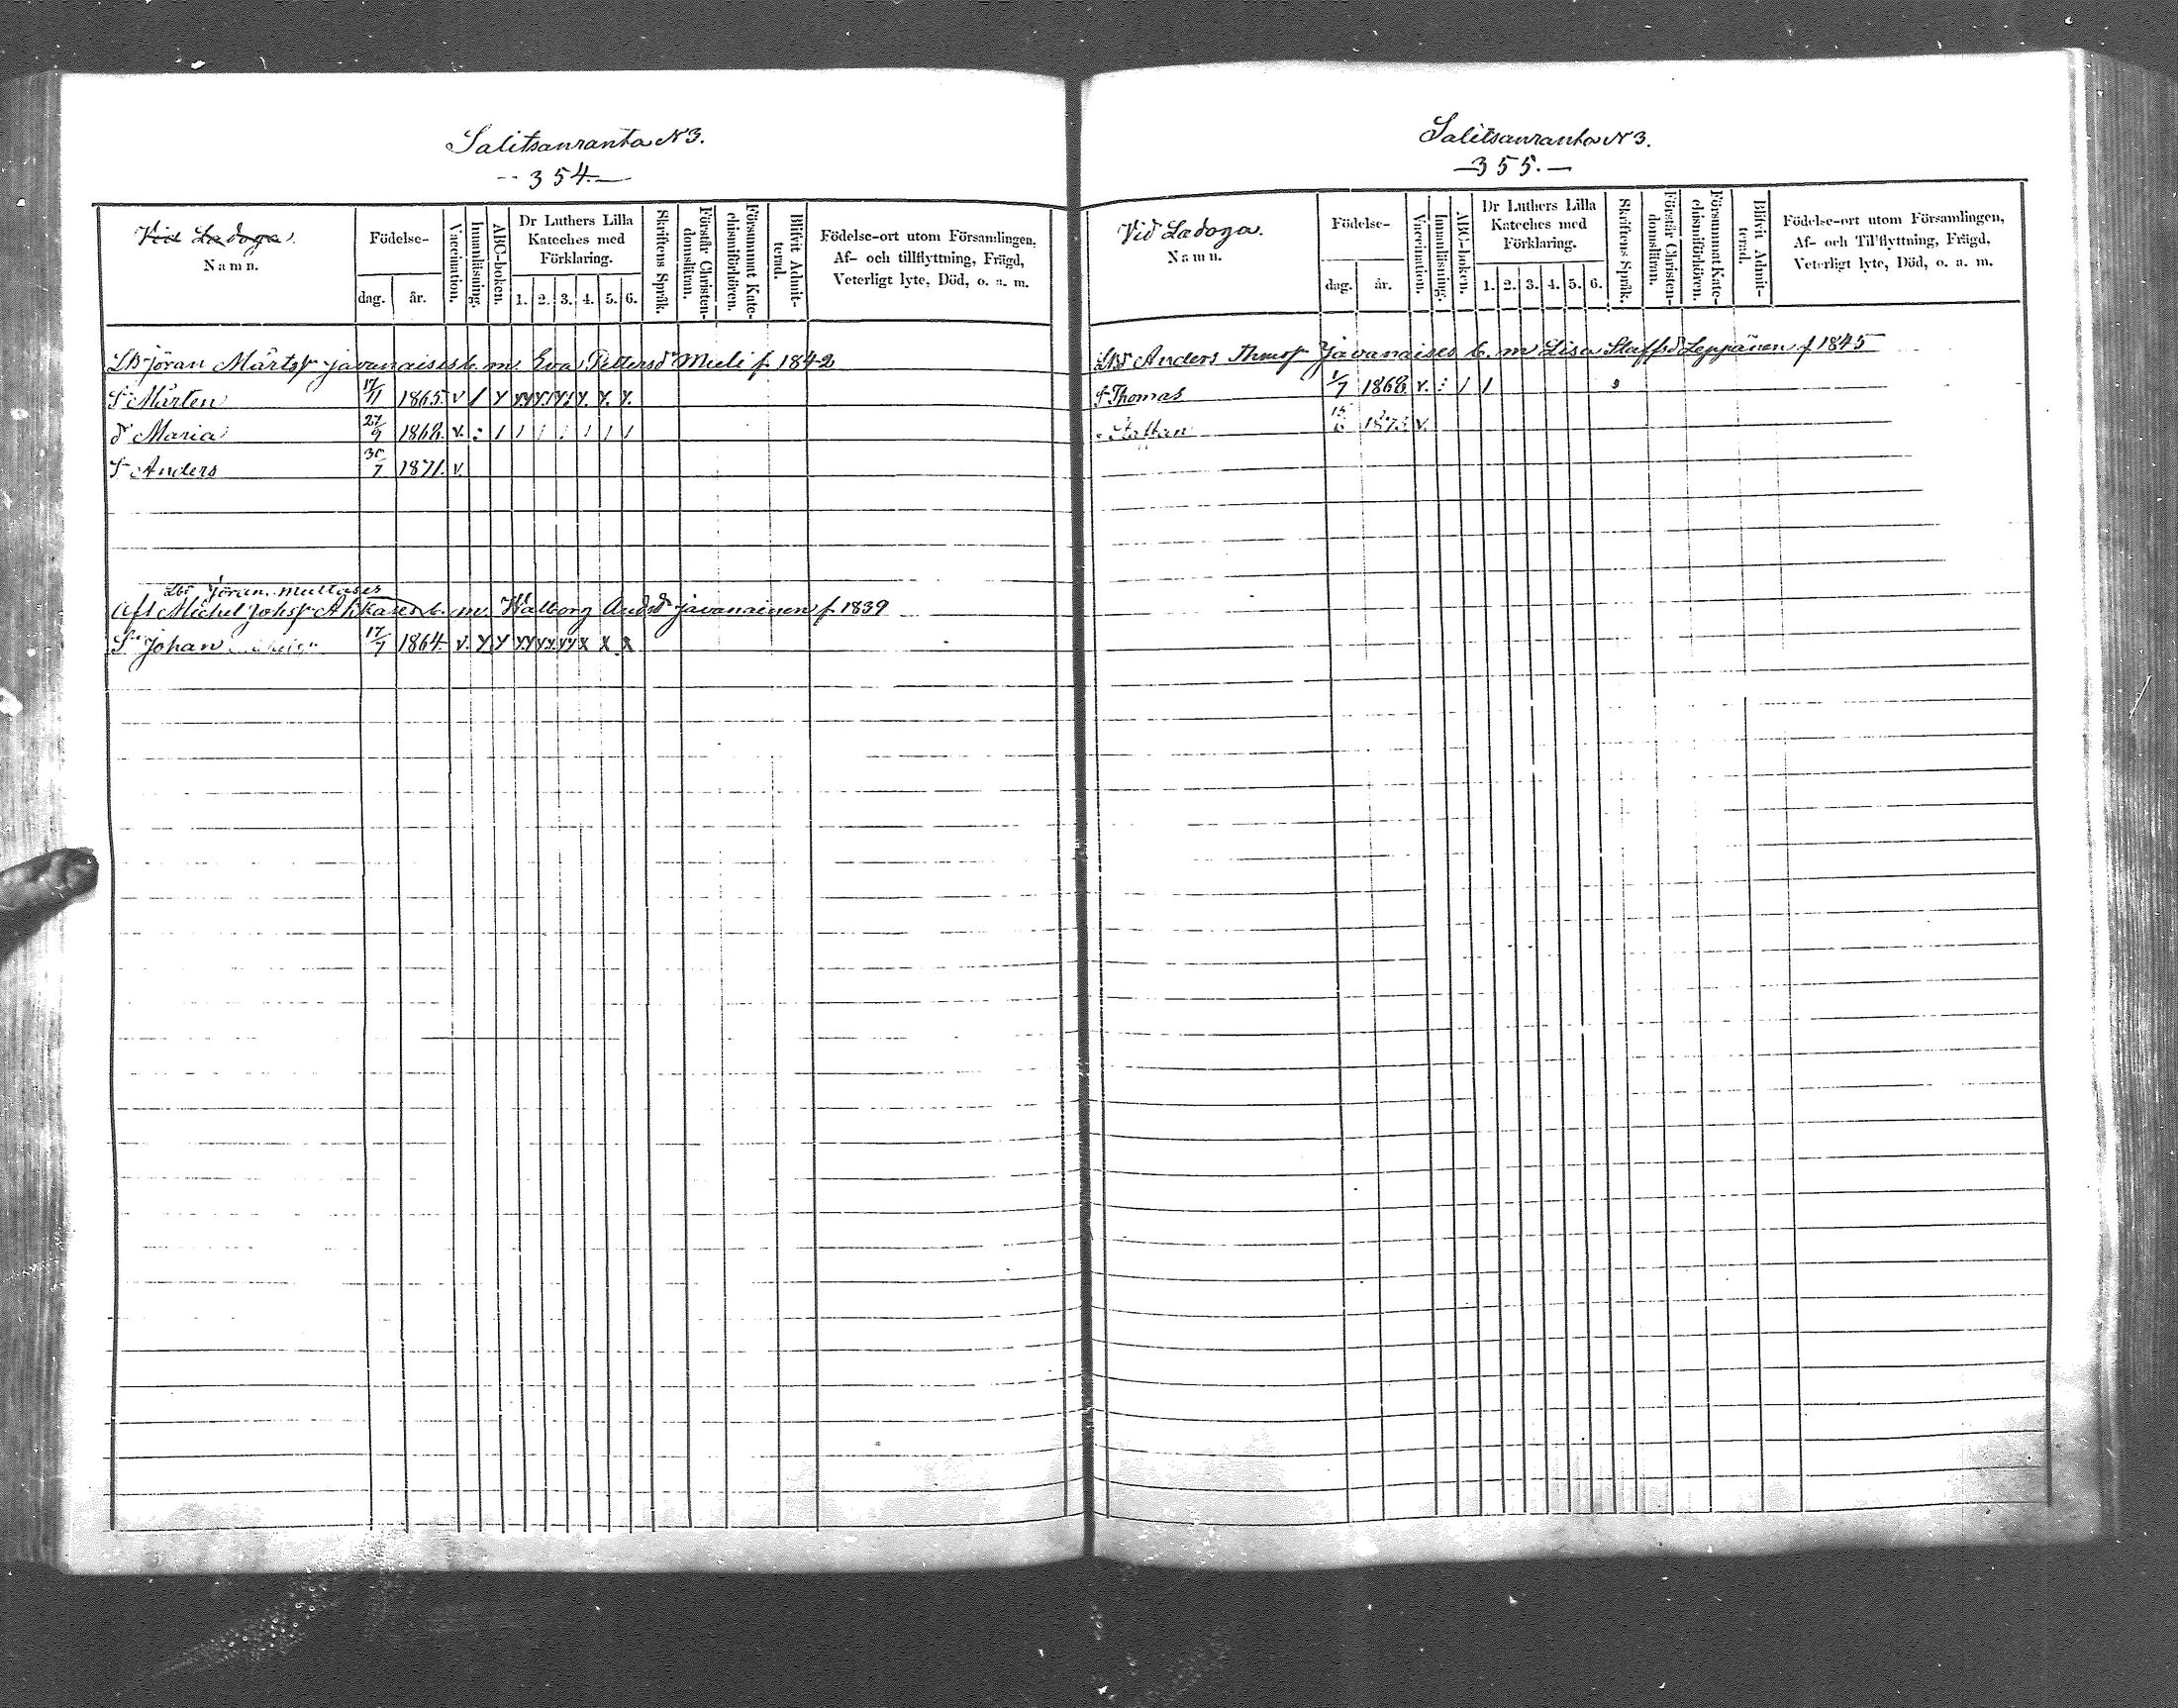 Salitsanranta N 3.
-- 354. —
Vid Ladoga.
Namn.
Födelse-
dag. år.
Vaccination.
Innanläsning.
ABC-boken.
Dr Luthers Lilla Kateches med Förklaring.
1. 2. 3. 4. 5. 6.
Skriftens Språk.
Förstår Christendomsläran.
Försummat Katechismiförhören.
Blifvit Admitterad.
Födelse-ort utom Församlingen,
Af- och tillflyttning, Frägd,
Veterligt lyte, Död, o. a. m.
Jöran Mårtsr Javanaises b. m. Eva Pettersdr Mieli f. 1842
S. Mårten 17/11 1865. v / y y.y y.y y. y. y.
d. Maria 27/9 1868. v. : / / / / / / /
S. Anders 30/7 1871. v.
Jöran Multases
Afl Michel Johsr Ahkares b. m. Walborg Andrsdr Javanainen f. 1839
S. Johan 17/7 1864. v. y y y.y y.y. y.y x x x
Salitsanranta N 3.
— 355. —
Vid Ladoga.
Namn.
Födelse-
dag. år.
Vaccination.
Innanläsning.
ABC-boken.
Dr Luthers Lilla Kateches med Förklaring.
1. 2. 3. 4. 5. 6.
Skriftens Språk.
Förstår Christendomsläran.
Försummat Katechismiförhören.
Blifvit Admitterad.
Födelse-ort utom Församlingen,
Af- och Tillflyttning, Frägd,
Veterligt lyte, Död, o. a. m.
Anders Thmsr Javanaises b. m Lisa Staffsd Leppänen f 1845
S. Thomas 1/7 1868. v. : / /
Staffan 15/6 1873. v.